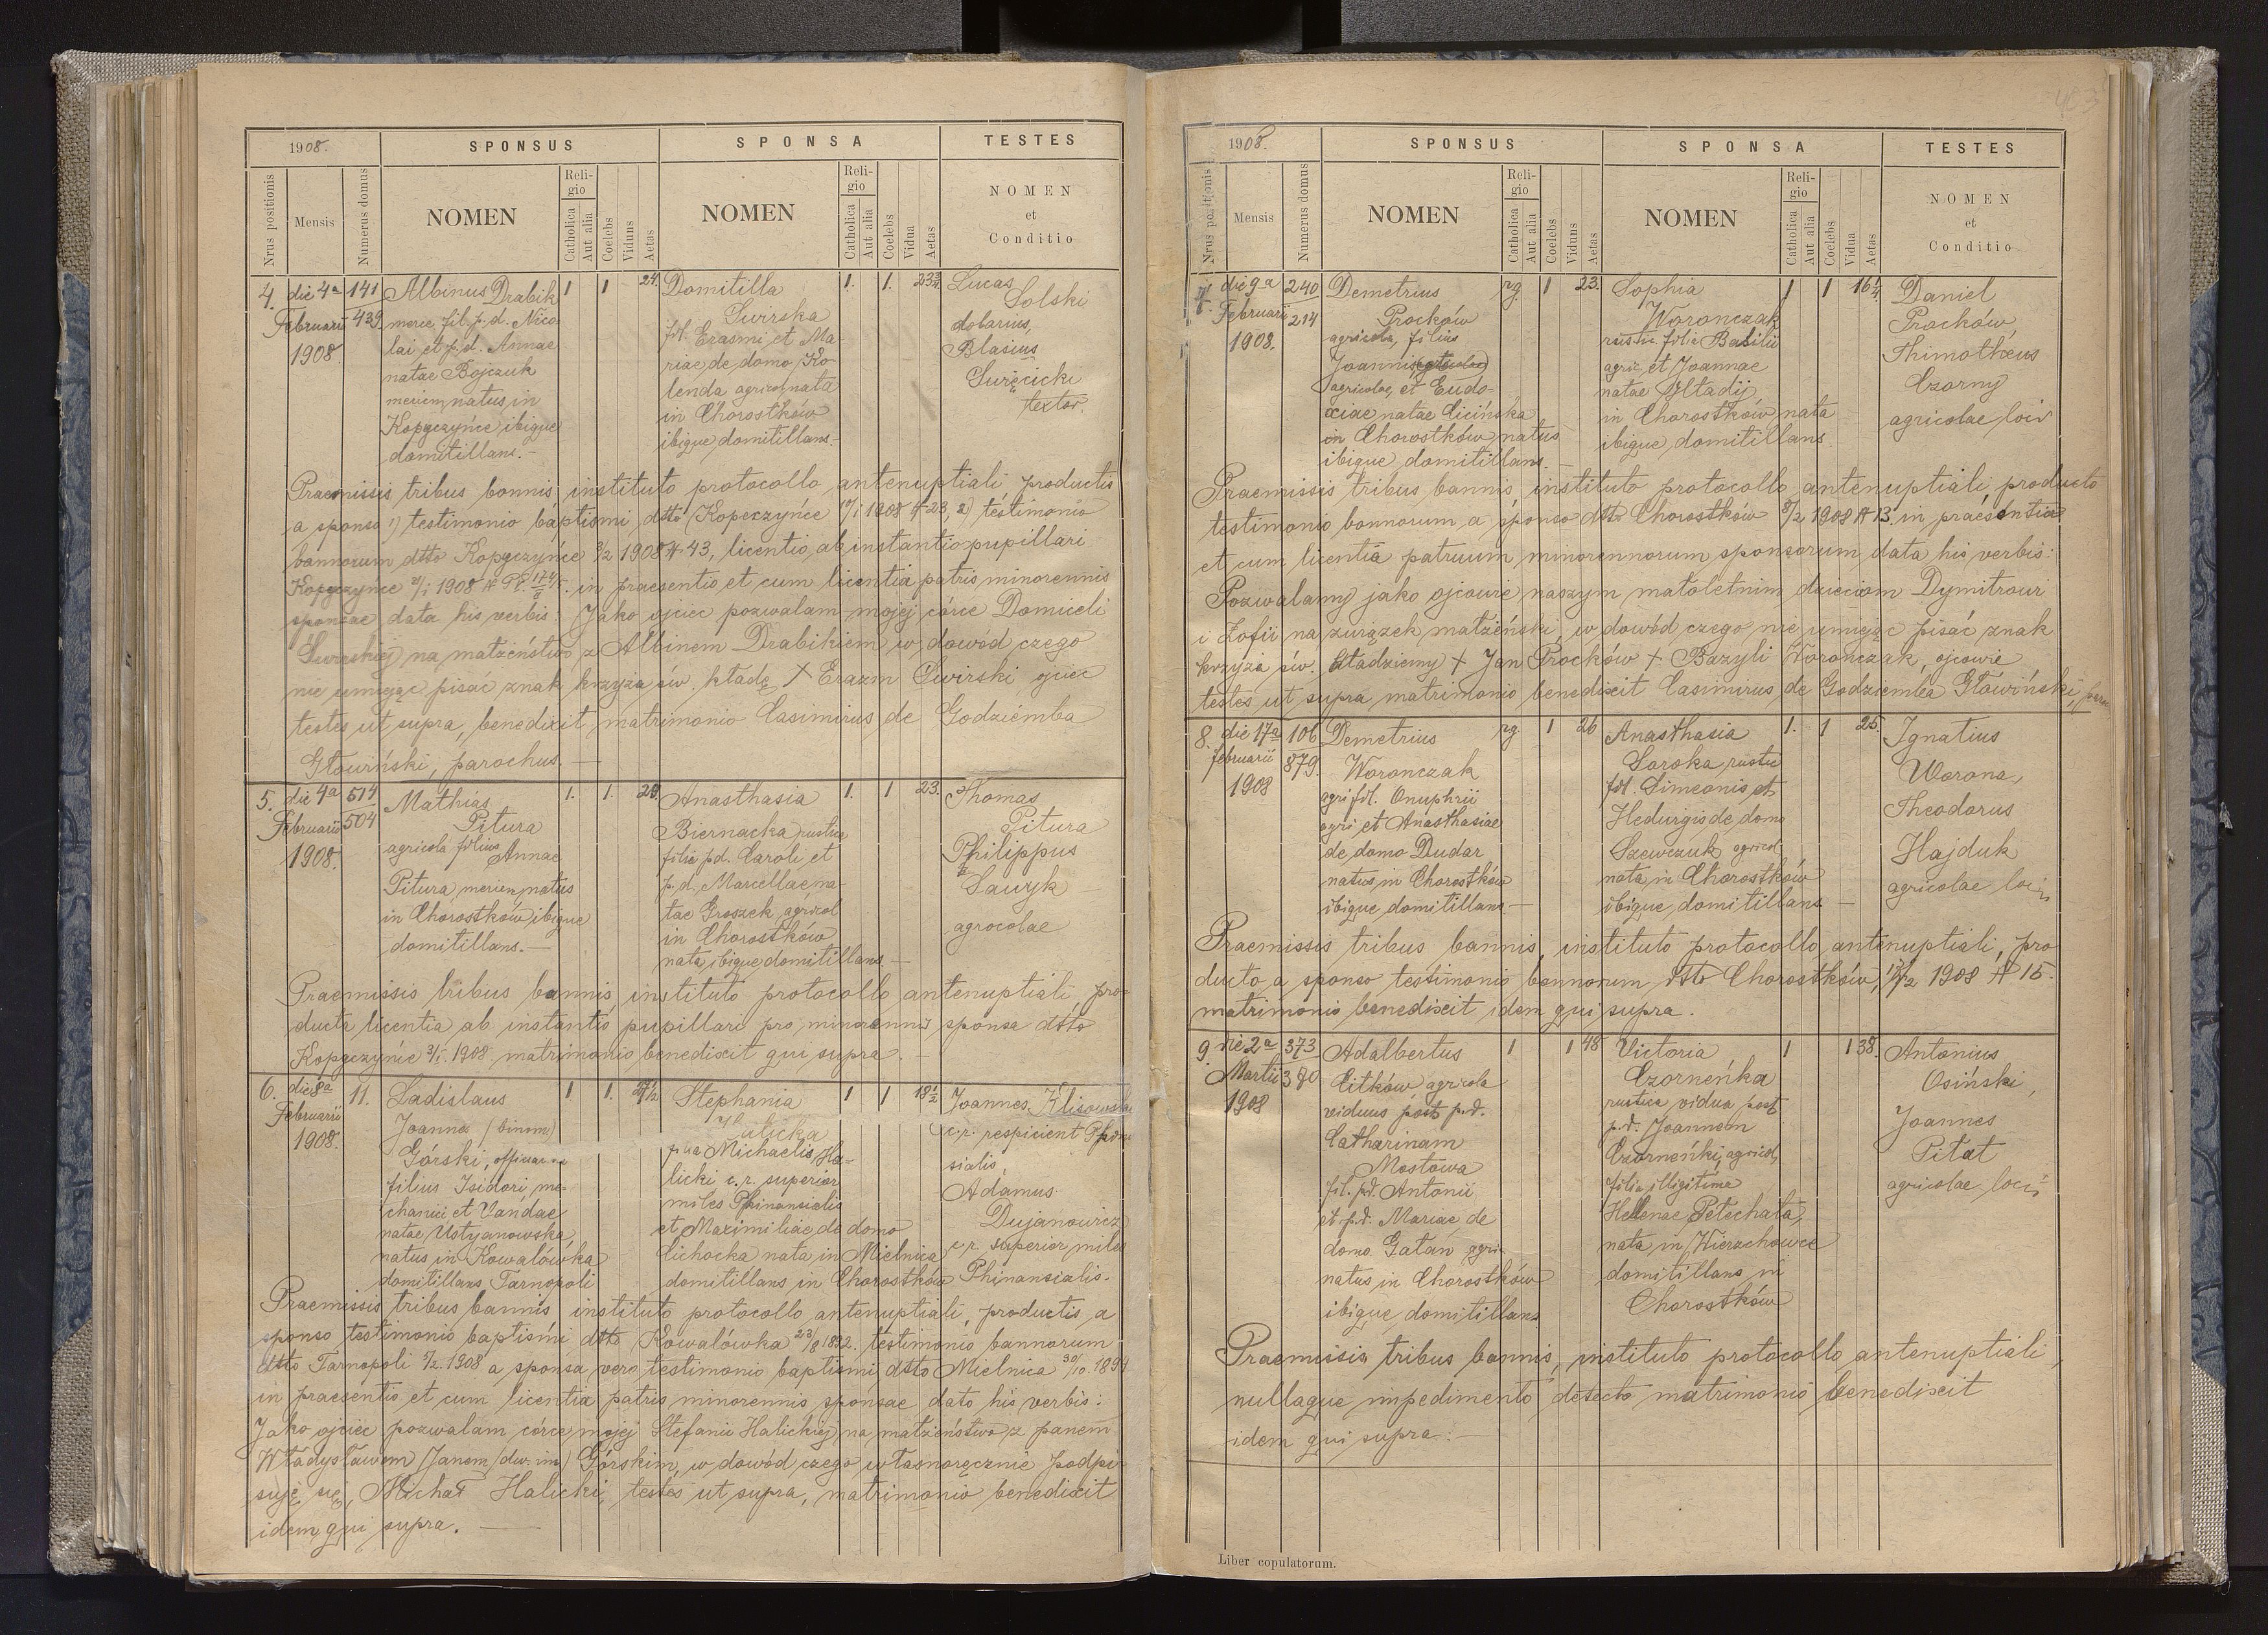 1908.
SPONSUS
SPONSA
TESTES
Nrus positionis
Mensis
Numerus domus
NOMEN
Religio
Catholica
Aut alia
Coelebs
Viduus
Aetas
NOMEN
Religio
Catholica
Aut alia
Coelebs
Vidua
Aetas
NOMEN
et
Conditio
4.
die 4a
Februarii
1908.
141
439
Albinus Drabik
merc. fil. p. d. Nico
lai et p. d. Annae
natae Bojczuk
natus in
Kopyczyńce ibique
domitillans. -
1
1
24.
Domitilla
Swirska
fil. Erasmi et Ma-
riae de domo Ko-
lenda agricol nata
in Chorostków
ibique domitillans -
1.
1.
23
Lucas
Solski
dolarius,
Blasius
Święcicki
textor.
Praemissis tribus bannis, instituto protocollo antenuptiali productis
a sponso 1) testimonio baptismi dtto Kopyczyńce 17/I 1908 # 23, 2) testimonio
bannorum dtto Kopyczyńce 3/2 1908 # 43, licentio ab instantio pupillari
Kopyczyńce 20/I 1908 # in praesentio et cum licentia patris minorennis
sponsae data his verbis: Jako ojciec pozwalam mojej córce Domiceli
Swirskiej na małżeństwo z Albinem Drabikiem w dowód czego
nie umiejąc pisać znak krzyża św. kładę + Erazm Świrski ojciec
testes ut supra, benedixit matrimonio Casimirus de Godziemba
Głowiński, parochus. -
5.
die 4a
Februarii
1908.
514
504
Mathias
Pitura
agricola filius
Annae
Pitura natus
in Chorostków ibique
domitillans. -
1.
1.
Anasthasia
Biernacka rustica
filia p.d. Caroli et
p. d. Marcellae na-
tae Groszek agricol
in Chorostków
nata ibique domitillans -
1.
1
23.
Thomas
Pitura
Philippus
Sawyk
agrocolae
Praemissis tribus bannis instituto protocollo antenuptiali pro-
ducta licentia ab instantio pupillari pro minorennis sponsa dtto
Kopyczyńce 3/I. 1908. matrimonio benedixit qui supra. -
6.
die 8a
Februarii
1908.
11.
Ladislaus
Joannes (binom)
Górski,
filius Isidori me-
chanici et Vandae
natae Ustyanowska,
natus in Kowalówka
domitillans Tarnopoli
1
1.
Stephania
Halicka
filia Michaelis Ha-
licki c. r. superior
miles Phinansialis
et Maximiliae de domo
Cichocka nata in Mielnica
domitillans in Chorostków
1
1
18 1/2
Joannes
c. r. respicient
sialis,
Adamus
Dujanowicz
c. r. superior miles
Phinansialis.
Praemissis tribus bannis instituto protocollo antenuptiali, productis a
sponso testimonio baptismi dtto Kowalówka 23/8 1882. testimonio bannorum
dtto Tarnopoli 5/2. 1908 a sponsa vero testimonio baptismi dtto Mielnica 30/10. 1891
in praesentio et cum licentia patris minorennis sponsae dato his verbis:
Jako ojciec pozwalam córce mojej Stefanii Halickiej na małżeństwo z panem
Władysławem Janem (dw. im) Górskim, w dowód czego własnoręcznie podpi-
suję się, Michał Halicki, testes ut supra, matrimonio benedixit
idem qui supra. -
1908.
SPONSUS
SPONSA
TESTES
Nrus positionis
Mensis
Numerus domus
NOMEN
Religio
Catholica
Aut alia
Coelebs
Viduus
Aetas
NOMEN
Religio
Catholica
Aut alia
Coelebs
Vidua
Aetas
NOMEN
et
Conditio
7.
die 9a
Februarii
1908.
240
214
Demetrius
Proćków
agricola, filius
Joannis
agricolae, et Eudo-
xiae natae Cicińska
in Chorostków natus
ibique domitillans. -
rg.
1
23.
Sophia
Woronczak
filia Basilii
agric. et Joannae
natae
in Chorostków nata
ibique domitillans.
1
1
16
Daniel
Proćków,
Thimotheus
Czorny
agricolae loci
Praemissis tribus bannis, instituto protocollo antenuptiali, producto
testimonio bannorum a sponso dtto Chorostków 8/2 1908 # 13. in praesentia
et cum licentia patruum minorennorum sponsorum data his verbis:
Pozwalamy jako ojcowie naszym małoletnim dzieciom Dymitrowi
i Zofii na związek małżeński, w dowód czego nie umiejąc pisać znak
krzyża św. kładziemy + Jan Proćków + Bazyli Woronczak, ojcowie
testes ut supra matrimonio benedixit Casimirus de Godziemba Głowiński,
8.
die 17a
februarii
1908
106
879.
Demetrius
Woronczak
agri fil. Onuphrii
agri et Anasthasiae
de domo Dudar
natus in Chorostków
ibique domitillans -
rg.
1
26
Anasthasia
Soroka rustic
fil. Simeonis et
Hedwigis de domo
Szewczuk agricol
nata in Chorostków
ibique domitillans -
1.
1
25.
Ignatius
Worona,
Theodorus
Hajduk
agricolae loci
Praemissis tribus bannis, instituto protocollo antenuptiali, pro
ducto a sponso testimonio bannorum dtto Chorostków, 17/2 1908 # 15.
matrimonio benedixit idem qui supra.
9.
die 2a
Martii
1908
373
390
Adalbertus
Citków agricola
viduus post p.d.
Catharinam
Mostowa
fil. p.d. Antonii
et p.d. Mariae de
domo Gałan agric
natus in Chorostków
ibique domitillans
1
1
48
Victoria
Czorneńka
rustica vidua post
p.d. Joannem
Czorneńki, agricol,
filia illigitima
Hellenae Petechała,
nata in Wierzchowce
domitillans in
Chorostków
1
1
38.
Antonius
Osiński,
Joannes
Pitat
agricolae loci
Praemissis tribus bannis, instituto protocollo antenuptiali,
nullaque impedimento detecto matrimonio benedixit
idem qui supra: -
Liber copulatorum.